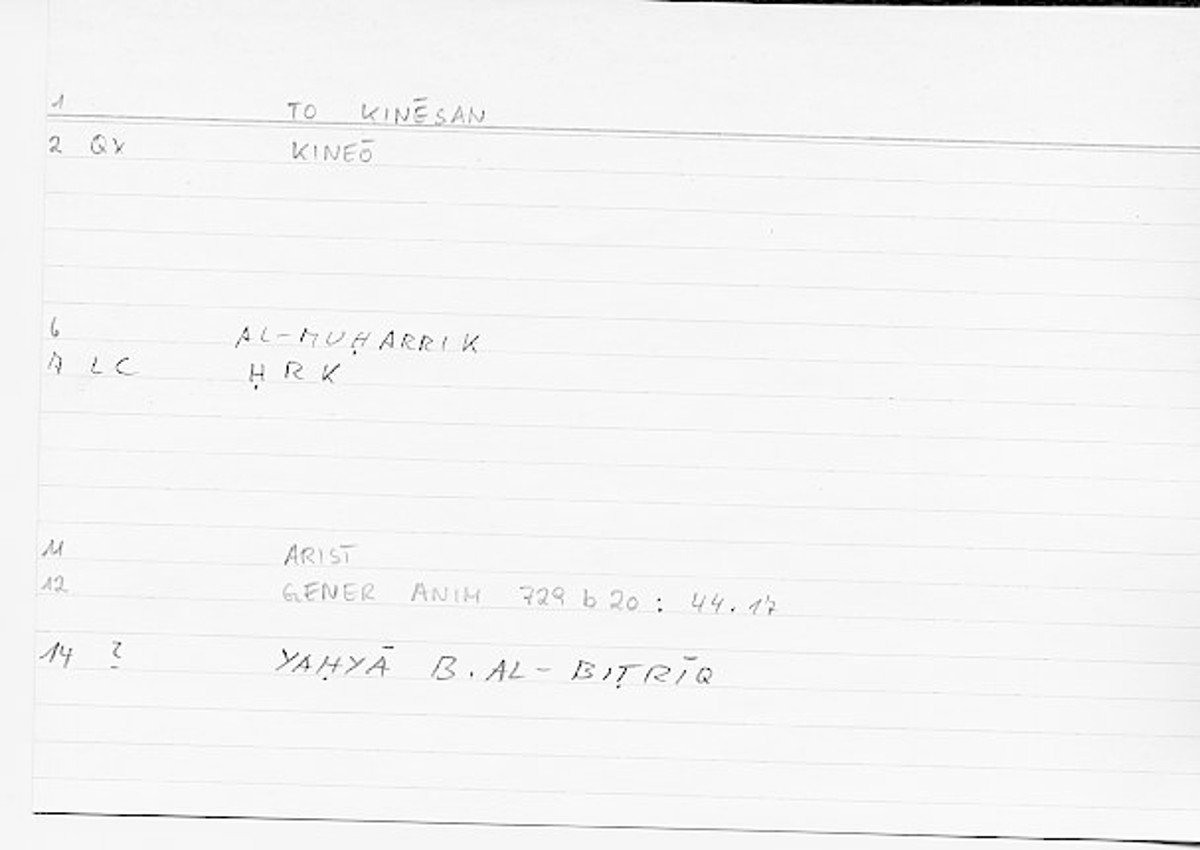 1 TO KINĒSAN
2 QX KINEŌ
6 AL-MUḤARRIK
7 LC ḤRK
11 ARIST
12 GENER ANIM 729 b 20 : 44.17
14 ? YAḤYĀ B. AL-BIṬRĪQ